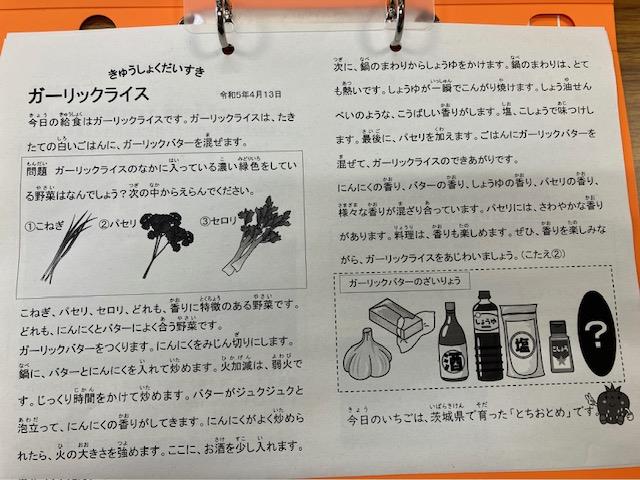 きゅうしょくだいすき
ガーリックライス　令和5年4月13日
今日の給食はガーリックライスです。ガーリックライスは、たき
たての白いごはんに、ガーリックバターを混ぜます。
問題　ガーリックライスのなかに入っている濃い緑色をしてい
る野菜はなんでしょう？次の中からえらんでください。
①こねぎ　②パセリ　③セロリ
こねぎ、パセリ、セロリ、どれも、香りに特徴のある野菜です。
どれも、にんにくとバターによく合う野菜です。
ガーリックバターをつくります。にんにくをみじん切りにします。
鍋に、バターとにんにくを入れて炒めます。火加減は、弱火で
す。じっくり時間をかけて炒めます。バターがジュクジュクと
泡立って、にんにくの香りがしてきます。にんにくがよく炒めら
れたら、火の大きさを強めます。ここに、お酒を少し入れます。
次に、鍋のまわりからしょうゆをかけます。鍋のまわりは、とて
も熱いです。しょうゆが一瞬でこんがり焼けます。しょう油せん
べいのような、こうばしい香りがします。塩、こしょうで味つけし
ます。最後に、パセリを加えます。ごはんにガーリックバターを
混ぜて、ガーリックライスのできあがりです。
にんにくの香り、バターの香り、しょうゆの香り、パセリの香り、
様々な香りが混ざり合っています。パセリには、さわやかな香り
があります。料理は、香りも楽しめます。ぜひ、香りを楽しみな
がら、ガーリックライスをあじわいましょう。（こたえ②）
ガーリックバターのざいりょう
酒
しょうゆ
塩
こしょう
？
今日のいちごは、茨城県で育った「とちおとめ」です。